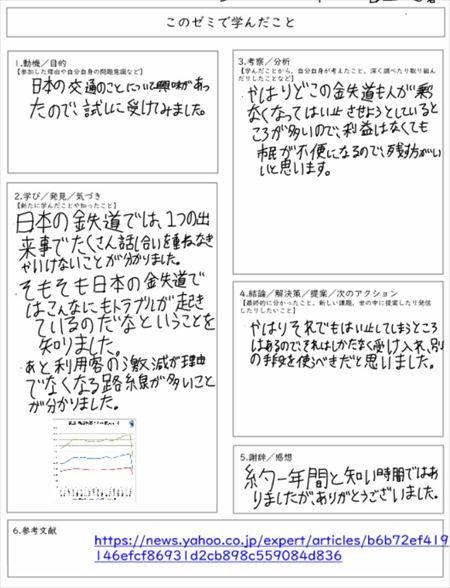 このゼミで学んだこと
1.動機／目的
【参加した理由や自分自身の問題意識など】
日本の交通のことについて興味があっ
たので、試しに受けてみました。
2.学び／発見／気づき
【新たに学んだことや知ったこと】
日本の鉄道では、1つの出
来事でたくさん話し合いを重ねなき
ゃいけないことが分かりました。
そもそも日本の金失道で
はこんなにもトラブルが起き
ているのだなということを
知りました。
あと利用客の激減が理由
でなくなる路線が多いこと
が分かりました。
3.考察／分析
【学んだことから、自分自身が考えたこと、深く調べたり取り組ん
だりしたことなど】
やはりどこの金失道も人が乗ら
なくなってはい止させようとしていると
ころが多いので、利益はなくても
市民が不便になるので、残す方がい
いと思います。
4.結論／解決策／提案／次のアクション
【最終的に分かったこと、新しい課題、世の中に提案したり発信
したりしたいこと】
やはりそれでもはい止してしまうところ
はあるので、それはしかたなく受け入れ、別
の手段を使うべきだと思いました。
5.謝辞／感想
約一年間と短い時間ではあ
りましたがありがとうございました。
6.参考文献
https://news.yahoo.co.jp/expert/articles/b6b72ef419
146efcf86931d2cb898c559084d836